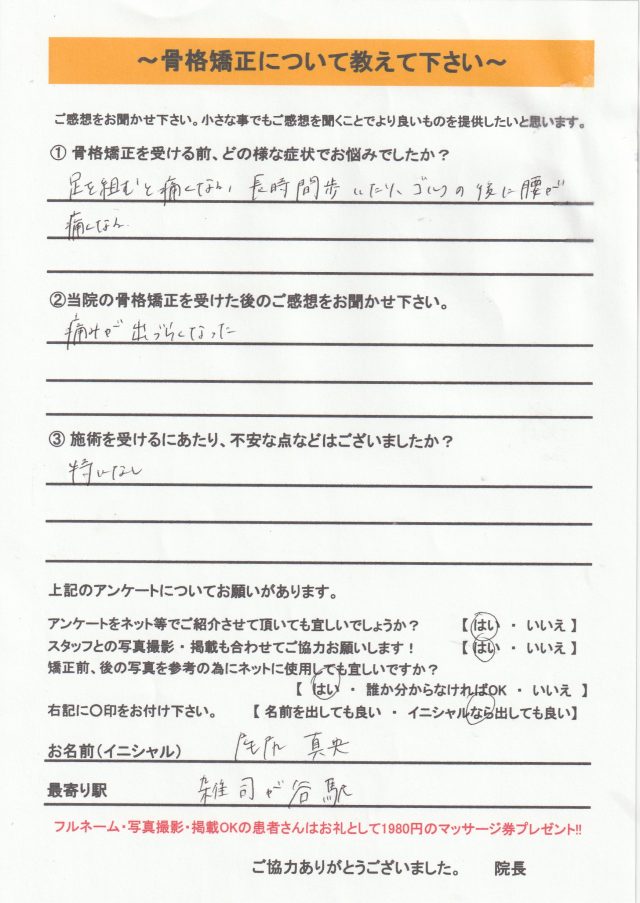 ～骨格矯正について教えて下さい～
ご感想をお聞かせ下さい。小さな事でもご感想を聞くことでより良いものを提供したいと思います。
① 骨格矯正を受ける前、どの様な症状でお悩みでしたか？
足を組むと痛くなる、長時間歩いたり、ゴルフの後に腰が
痛くなる
②当院の骨格矯正を受けた後のご感想をお聞かせ下さい。
痛みが出づらくなった
③ 施術を受けるにあたり、不安な点などはございましたか？
特になし
上記のアンケートについてお願いがあります。
アンケートをネット等でご紹介させて頂いても宜しいでしょうか？ 【 はい ・ いいえ 】
スタッフとの写真撮影・掲載も合わせてご協力お願いします！ 【 はい ・ いいえ 】
矯正前、後の写真を参考の為にネットに使用しても宜しいですか？
【 はい ・ 誰か分からなければOK ・ いいえ 】
右記に〇印をお付け下さい。 【 名前を出しても良い ・ イニシャルなら出しても良い】
お名前（イニシャル） 真央
最寄り駅 雑司が谷駅
フルネーム・写真撮影・掲載OKの患者さんはお礼として1980円のマッサージ券プレゼント!!
ご協力ありがとうございました。 院長